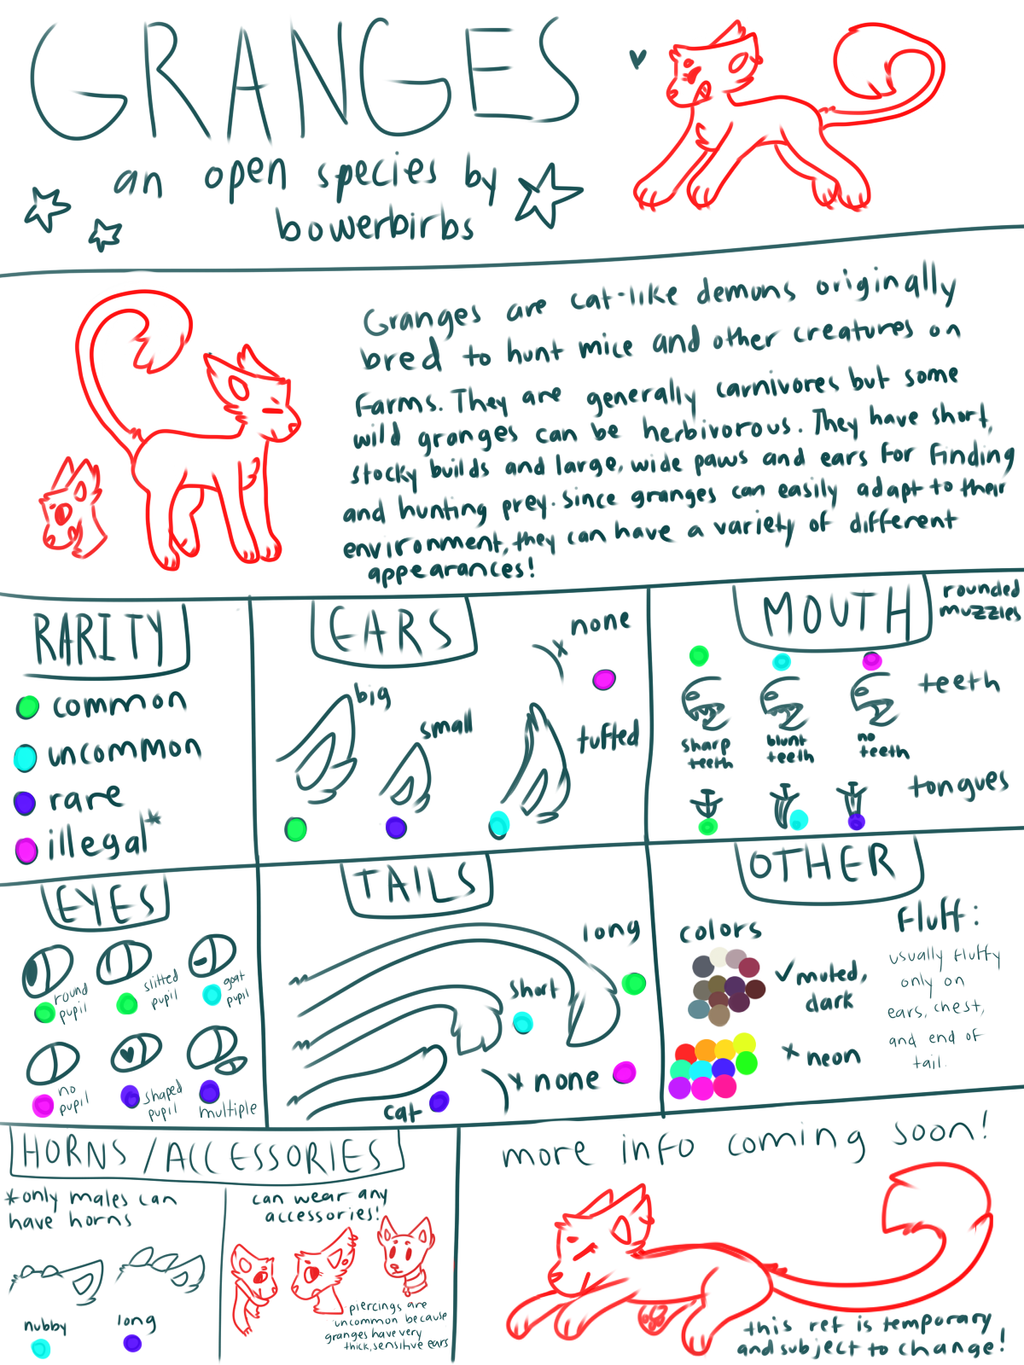 GRANGES
an open species by
bowerbirbs
Granges are cat-like demons originally
bred to hunt mice and other creatures on
farms. They are generally carnivores but some
wild granges can be herbivorous. They have short,
stocky builds and large, wide paws and ears for finding
and hunting prey. Since granges can easily adapt to their
environment, they can have a variety of different
appearances!
RARITY
common
uncommon
rare
illegal*
EARS
big
small
tufted
x none
MOUTH
rounded
muzzles
teeth
sharp
teeth
blunt
teeth
no
teeth
tongues
EYES
round
pupil
slitted
pupil
goat
pupil
no
pupil
shaped
pupil
multiple
TAILS
long
short
x none
cat
OTHER
colors
✓ muted,
dark
x neon
Fluff:
usually fluffy
only on
ears, chest,
and end of
tail.
HORNS/ACCESSORIES
*only males can
have horns
nubby
long
can wear any
accessories!
piercings are
uncommon because
granges have very
thick, sensitive ears
more info coming soon!
this ref is temporary
and subject to change!